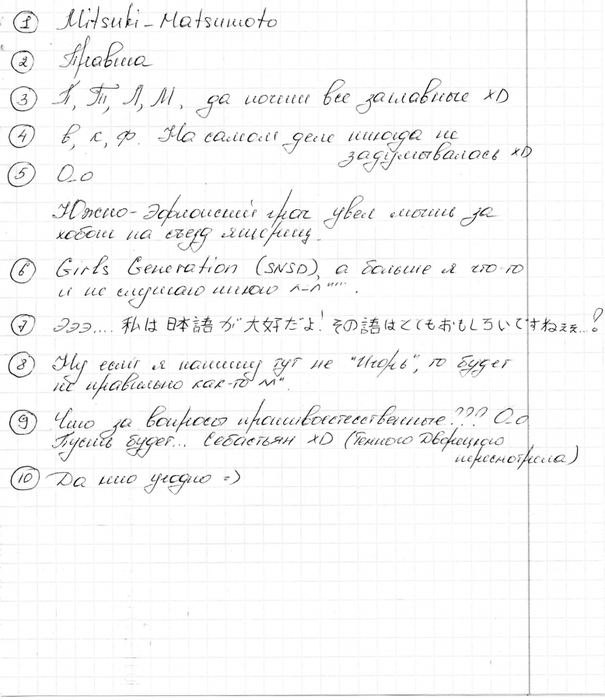 ① Mitsuki-Matsumoto
② Правша
③ К, Т, Л, М, да почти все заглавные xD
④ в, к, ф. На самом деле никогда не
задумывалась xD
⑤ O_o
Южно-Эфиопский грач увёл мышь за
хобот на съезд ящериц.
⑥ Girls Generation (SNSD), а больше я что-то
и не слушаю никого ^-^"""".
⑦ Эээ.... 私は日本語が大好だよ! その語はとてもおもしろいですねぇぇ...?
⑧ Ну если я напишу тут не "Игорь", то будет
не правильно как-то
⑨ Что за вопросы противоестественные??? O_o
Пусть будет... Себастьян xD (Тёмного Дворецкого
пересмотрела)
⑩ Да кто угодно =)